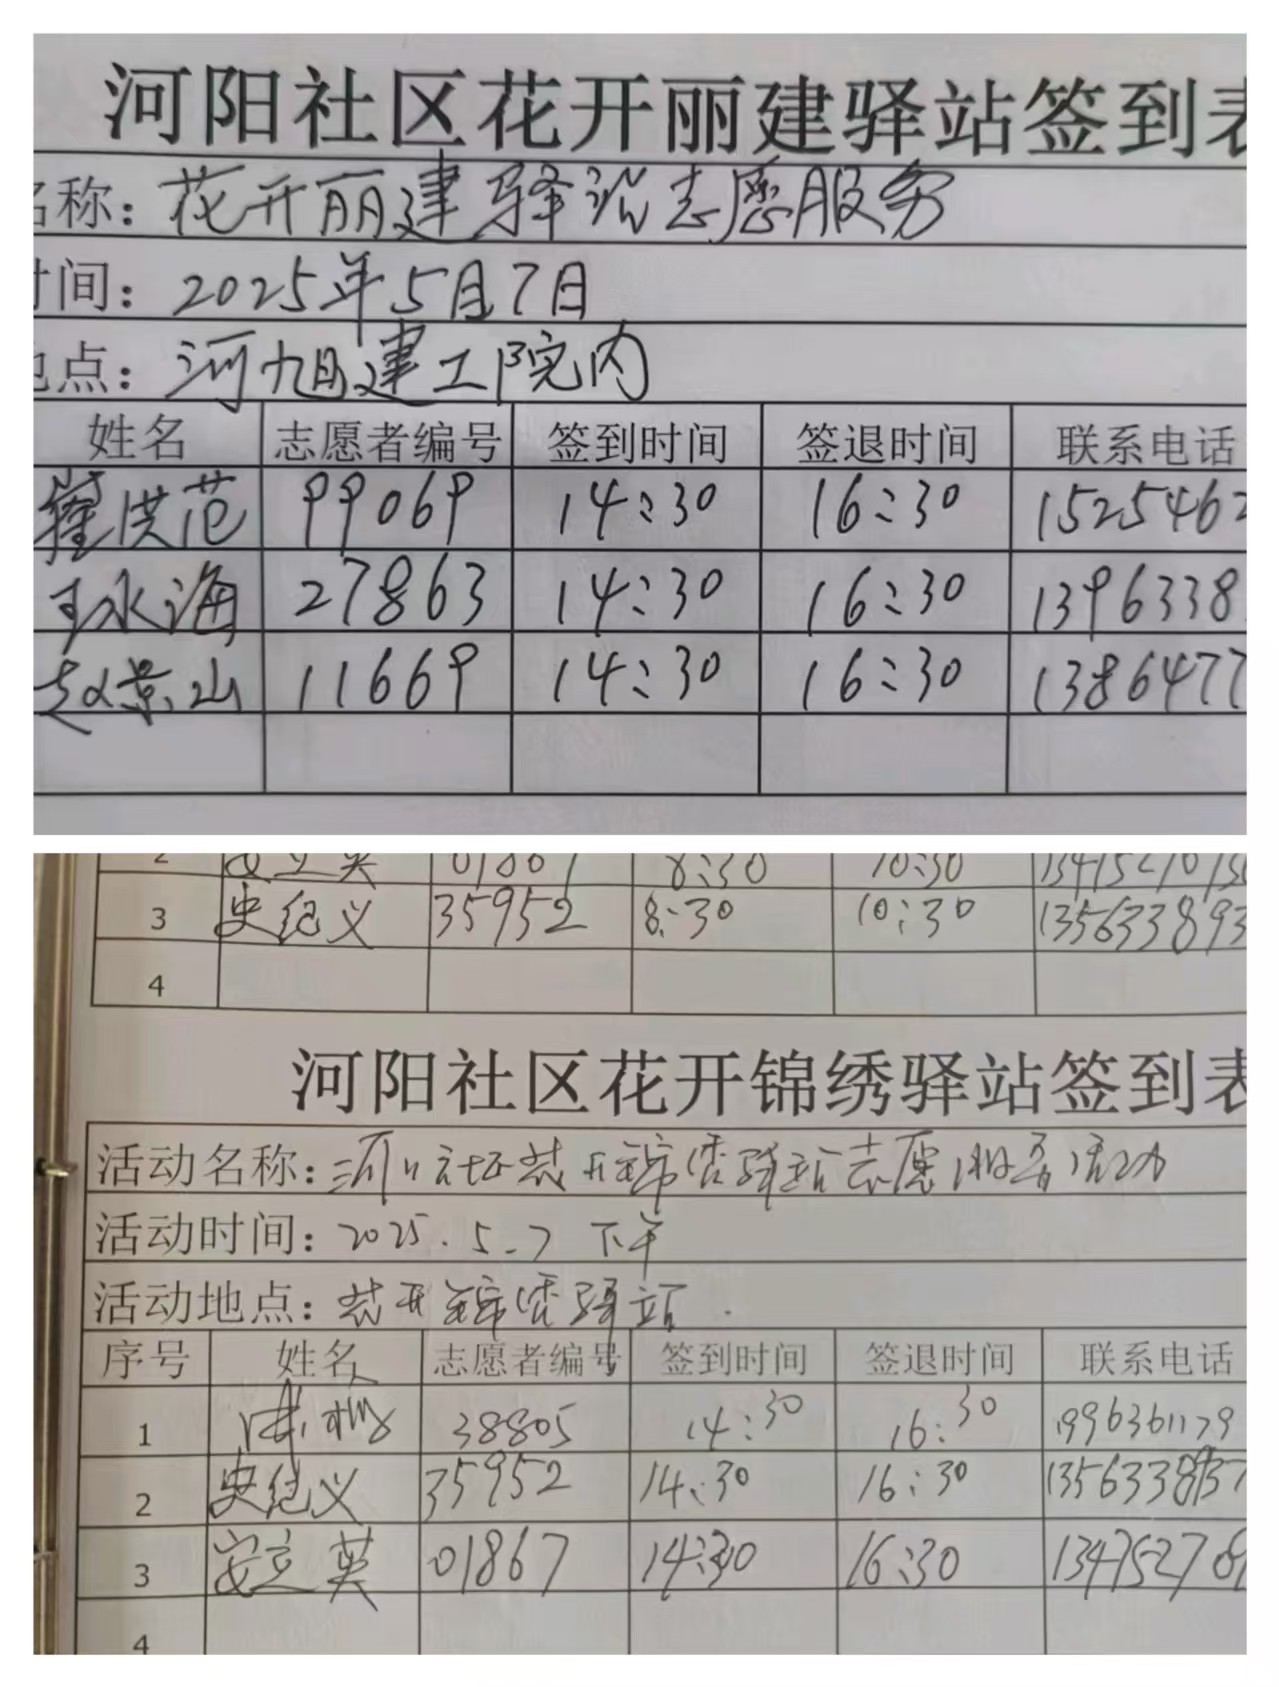 河阳社区花开丽建驿站签到表
名称：花开丽建驿站志愿服务
时间：2025年5月7日
地点：河旭建工院内
姓名 志愿者编号 签到时间 签退时间 联系电话
崔洪范 99069 14:30 16:30 1525462
王永海 27863 14:30 16:30 1396338
赵景山 11669 14:30 16:30 1386477
2 安立英 01867 8:30 10:30
3 史纪义 35952 8:30 10:30 135633893
4
河阳社区花开锦绣驿站签到表
活动名称：河阳社区花开锦绣驿站志愿服务活动
活动时间：2025.5.7 下午
活动地点：花开锦绣驿站.
序号 姓名 志愿者编号 签到时间 签退时间 联系电话
1 38805 14:30 16:30 1996361179
2 史纪义 35952 14:30 16:30
3 安立英 01867 14:30 16:30
4